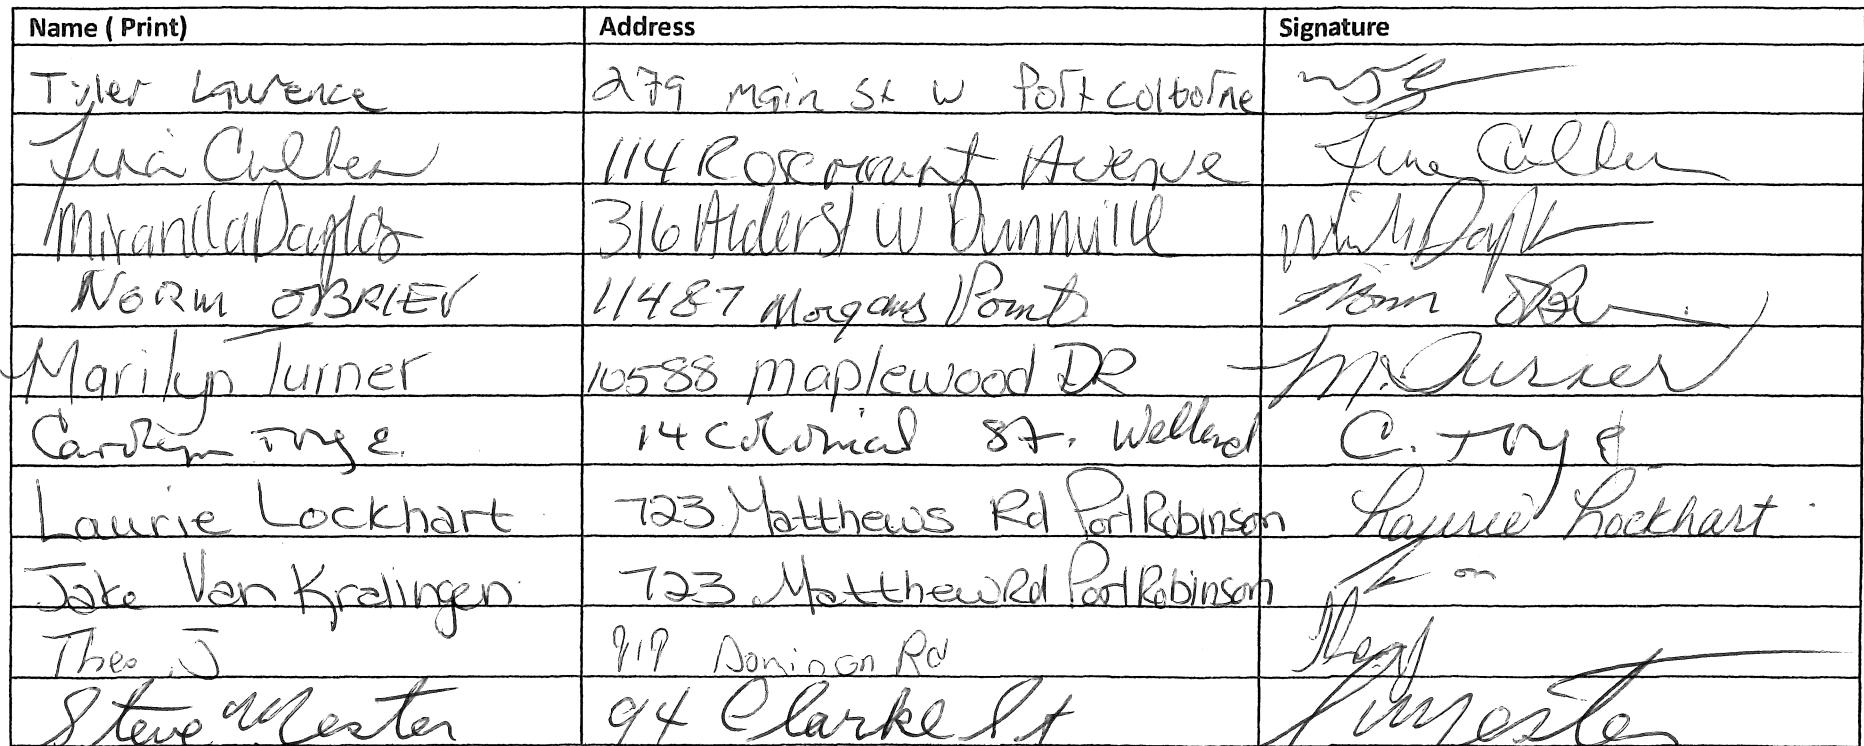 Name ( Print) Address Signature
Tyler Lawrence 279 Main St W Port Colborne
Tina Cullen 114 Rosemount Avenue Tina Cullen
Miranda 316 Alder St W Dunnville
NORM OBRIEN 11487 Morgans Point Norm
Marilyn Turner 10588 Maplewood DR M. Turner
Carolyn Tuye 14 Colonial St. Welland C. Tuye
Laurie Lockhart 723 Matthews Rd Port Robinson Laurie Lockhart
Jake Van Kralingen 723 Matthew Rd Port Robinson
Theo J Rd Theo J
Steve Mester 94 Clarke St S Mester